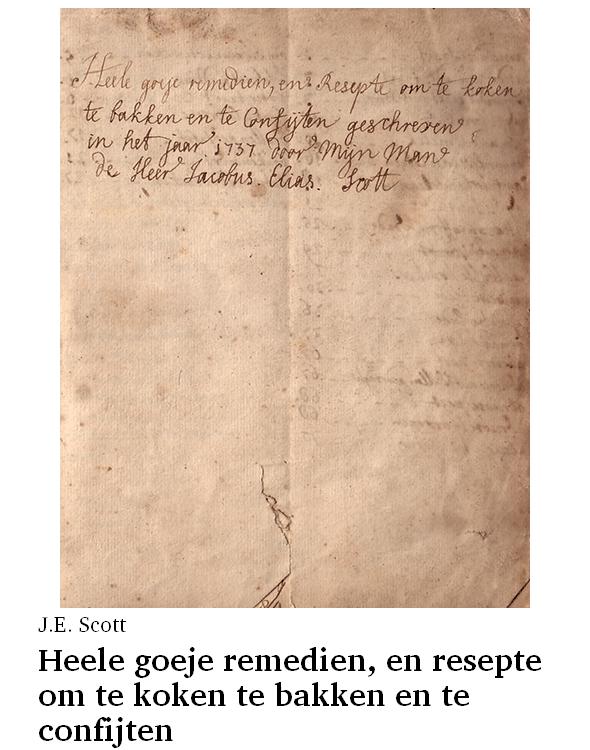 Heele goeje remedien, en Resepte om te koken
te bakken en te Confijten geschreven
in het jaar 1737 door Mijn Man
de Heer Jacobus. Elias. Scott
J.E. Scott
Heele goeje remedien, en resepte
om te koken te bakken en te
confijten